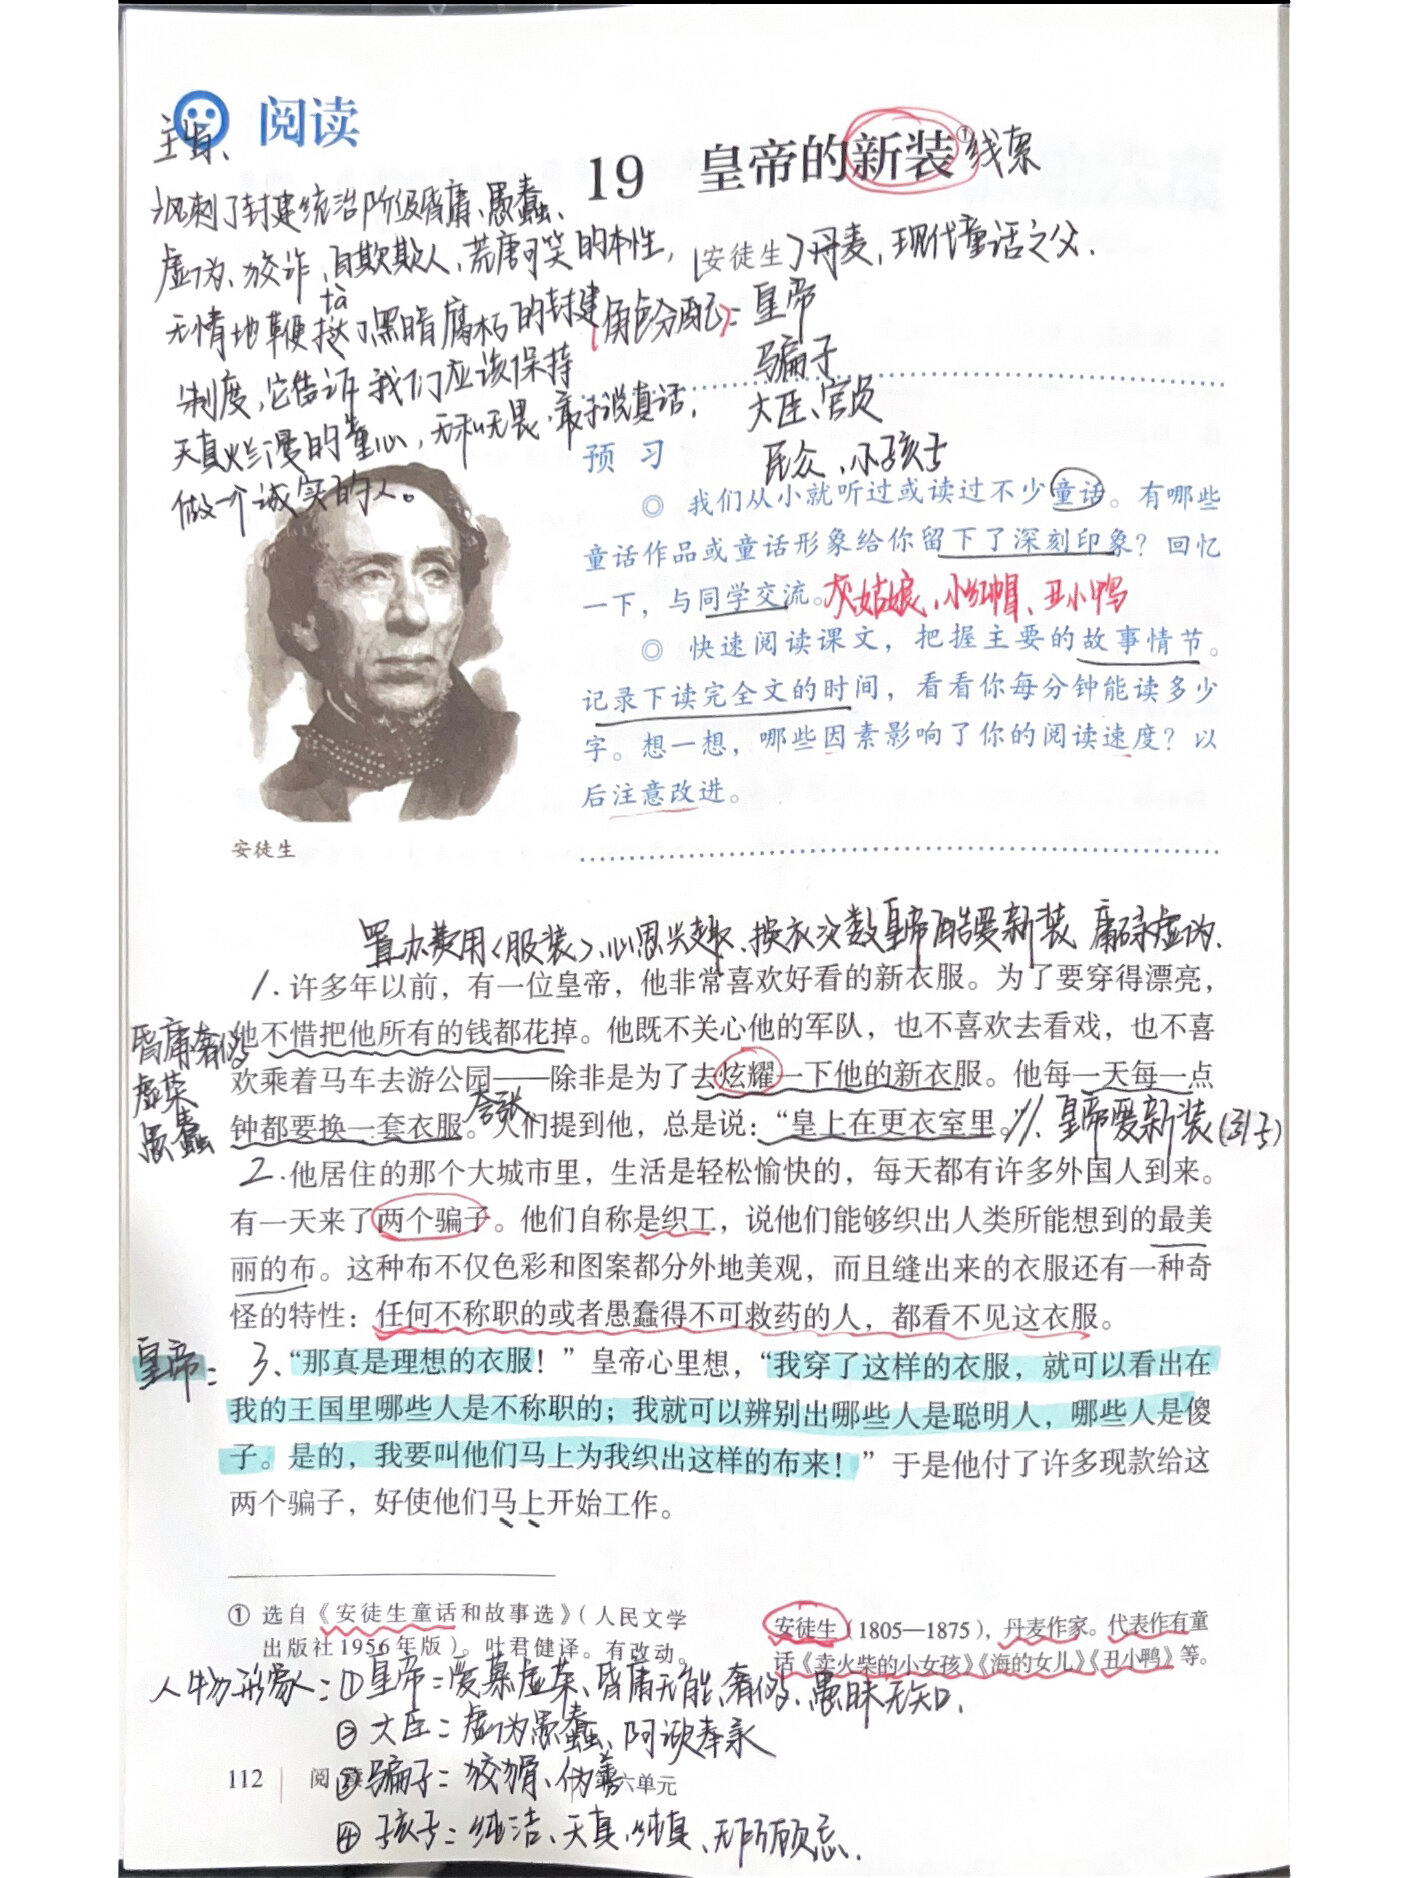 阅读
主旨、
19 皇帝的新装①线索
讽刺了封建统治阶级昏庸、愚蠢、
虚伪、狡诈、自欺欺人、荒唐可笑的本性，
[安徒生]丹麦，现代童话之父.
tà
无情地鞭挞了黑暗腐朽的封建
制度，它告诉我们应该保持
天真烂漫的童心，无私无畏，敢于说真话，
做一个诚实的人。
(角色分配)：皇帝
骗子
大臣、官员
民众、小孩子
预 习
◎ 我们从小就听过或读过不少童话。有哪些
童话作品或童话形象给你留下了深刻印象？回忆
一下，与同学交流。灰姑娘、小红帽、丑小鸭
◎ 快速阅读课文，把握主要的故事情节。
记录下读完全文的时间，看看你每分钟能读多少
字。想一想，哪些因素影响了你的阅读速度？以
后注意改进。
安徒生
置办费用〈服装〉、心思兴趣、换衣次数皇帝酷爱新装 庸碌虚伪.
1.许多年以前，有一位皇帝，他非常喜欢好看的新衣服。为了要穿得漂亮，
他不惜把他所有的钱都花掉。他既不关心他的军队，也不喜欢去看戏，也不喜
欢乘着马车去游公园——除非是为了去炫耀一下他的新衣服。他每一天每一点
钟都要换一套衣服。人们提到他，总是说：“皇上在更衣室里。”//、皇帝爱新装(引子)
夸张
昏庸奢侈
虚荣
愚蠢
2.他居住的那个大城市里，生活是轻松愉快的，每天都有许多外国人到来。
有一天来了两个骗子。他们自称是织工，说他们能够织出人类所能想到的最美
丽的布。这种布不仅色彩和图案都分外地美观，而且缝出来的衣服还有一种奇
怪的特性：任何不称职的或者愚蠢得不可救药的人，都看不见这衣服。
皇帝：3、“那真是理想的衣服！”皇帝心里想，“我穿了这样的衣服，就可以看出在
我的王国里哪些人是不称职的；我就可以辨别出哪些人是聪明人，哪些人是傻
子。是的，我要叫他们马上为我织出这样的布来！”于是他付了许多现款给这
两个骗子，好使他们马上开始工作。
① 选自《安徒生童话和故事选》（人民文学
出版社1956年版）。叶君健译。有改动。
安徒生（1805—1875），丹麦作家。代表作有童
话《卖火柴的小女孩》《海的女儿》《丑小鸭》等。
人物形象：①皇帝：爱慕虚荣、昏庸无能、奢侈、愚昧无知.
②大臣：虚伪愚蠢、阿谀奉承
③骗子：狡猾、伪善
④孩子：纯洁、天真、纯真、无所顾忌.
112 阅 第六单元